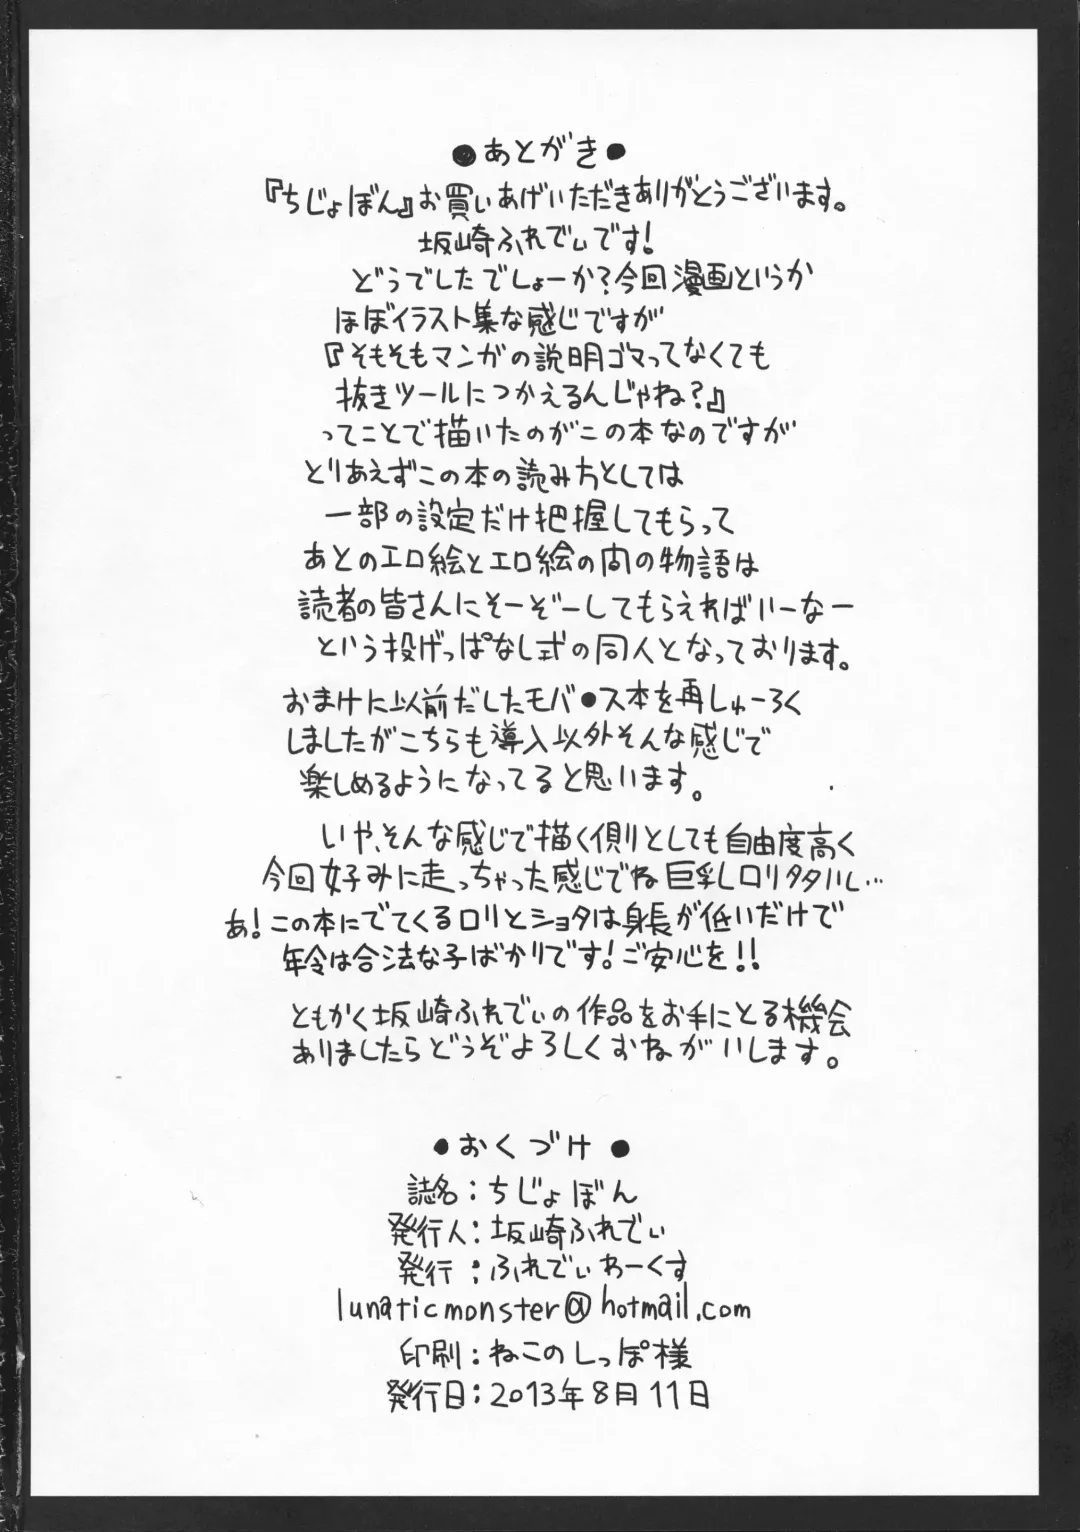 ●あとがき●
『ちじょぼん』お買いあげいただきありがとうございます。
坂崎ふれでぃです!
どうでしたでしょーか?今回漫画というか
ほぼイラスト集な感じですが
『そもそもマンガの説明ゴマってなくても
抜きツールにつかえるんじゃね?』
ってことで描いたのがこの本なのですが
とりあえずこの本の読み方としては
一部の設定だけ把握してもらって
あとのエロ絵とエロ絵の間の物語は
読者の皆さんにそーぞーしてもらえればいーなー
という投げっぱなし式の同人となっております。
おまけに以前だしたモバ●ス本を再しゅーろく
しましたがこちらも導入以外そんな感じで
楽しめるようになってると思います。
いや、そんな感じで描く側としても自由度高く
今回好みに走っちゃった感じでね巨乳ロリタタハし…
あ!この本にでてくるロリとショタは身長が低いだけで
年令は合法な子ばかりです!ご安心を!!
ともかく坂崎ふれでぃの作品をお手にとる機会
ありましたらどうぞよろしくおねがいします。
●おくづけ●
誌名:ちじょぼん
発行人:坂崎ふれでぃ
発行:ふれでぃわーくす
lunaticmonster@hotmail.com
印刷:ねこのしっぽ様
発行日:2013年8月11日